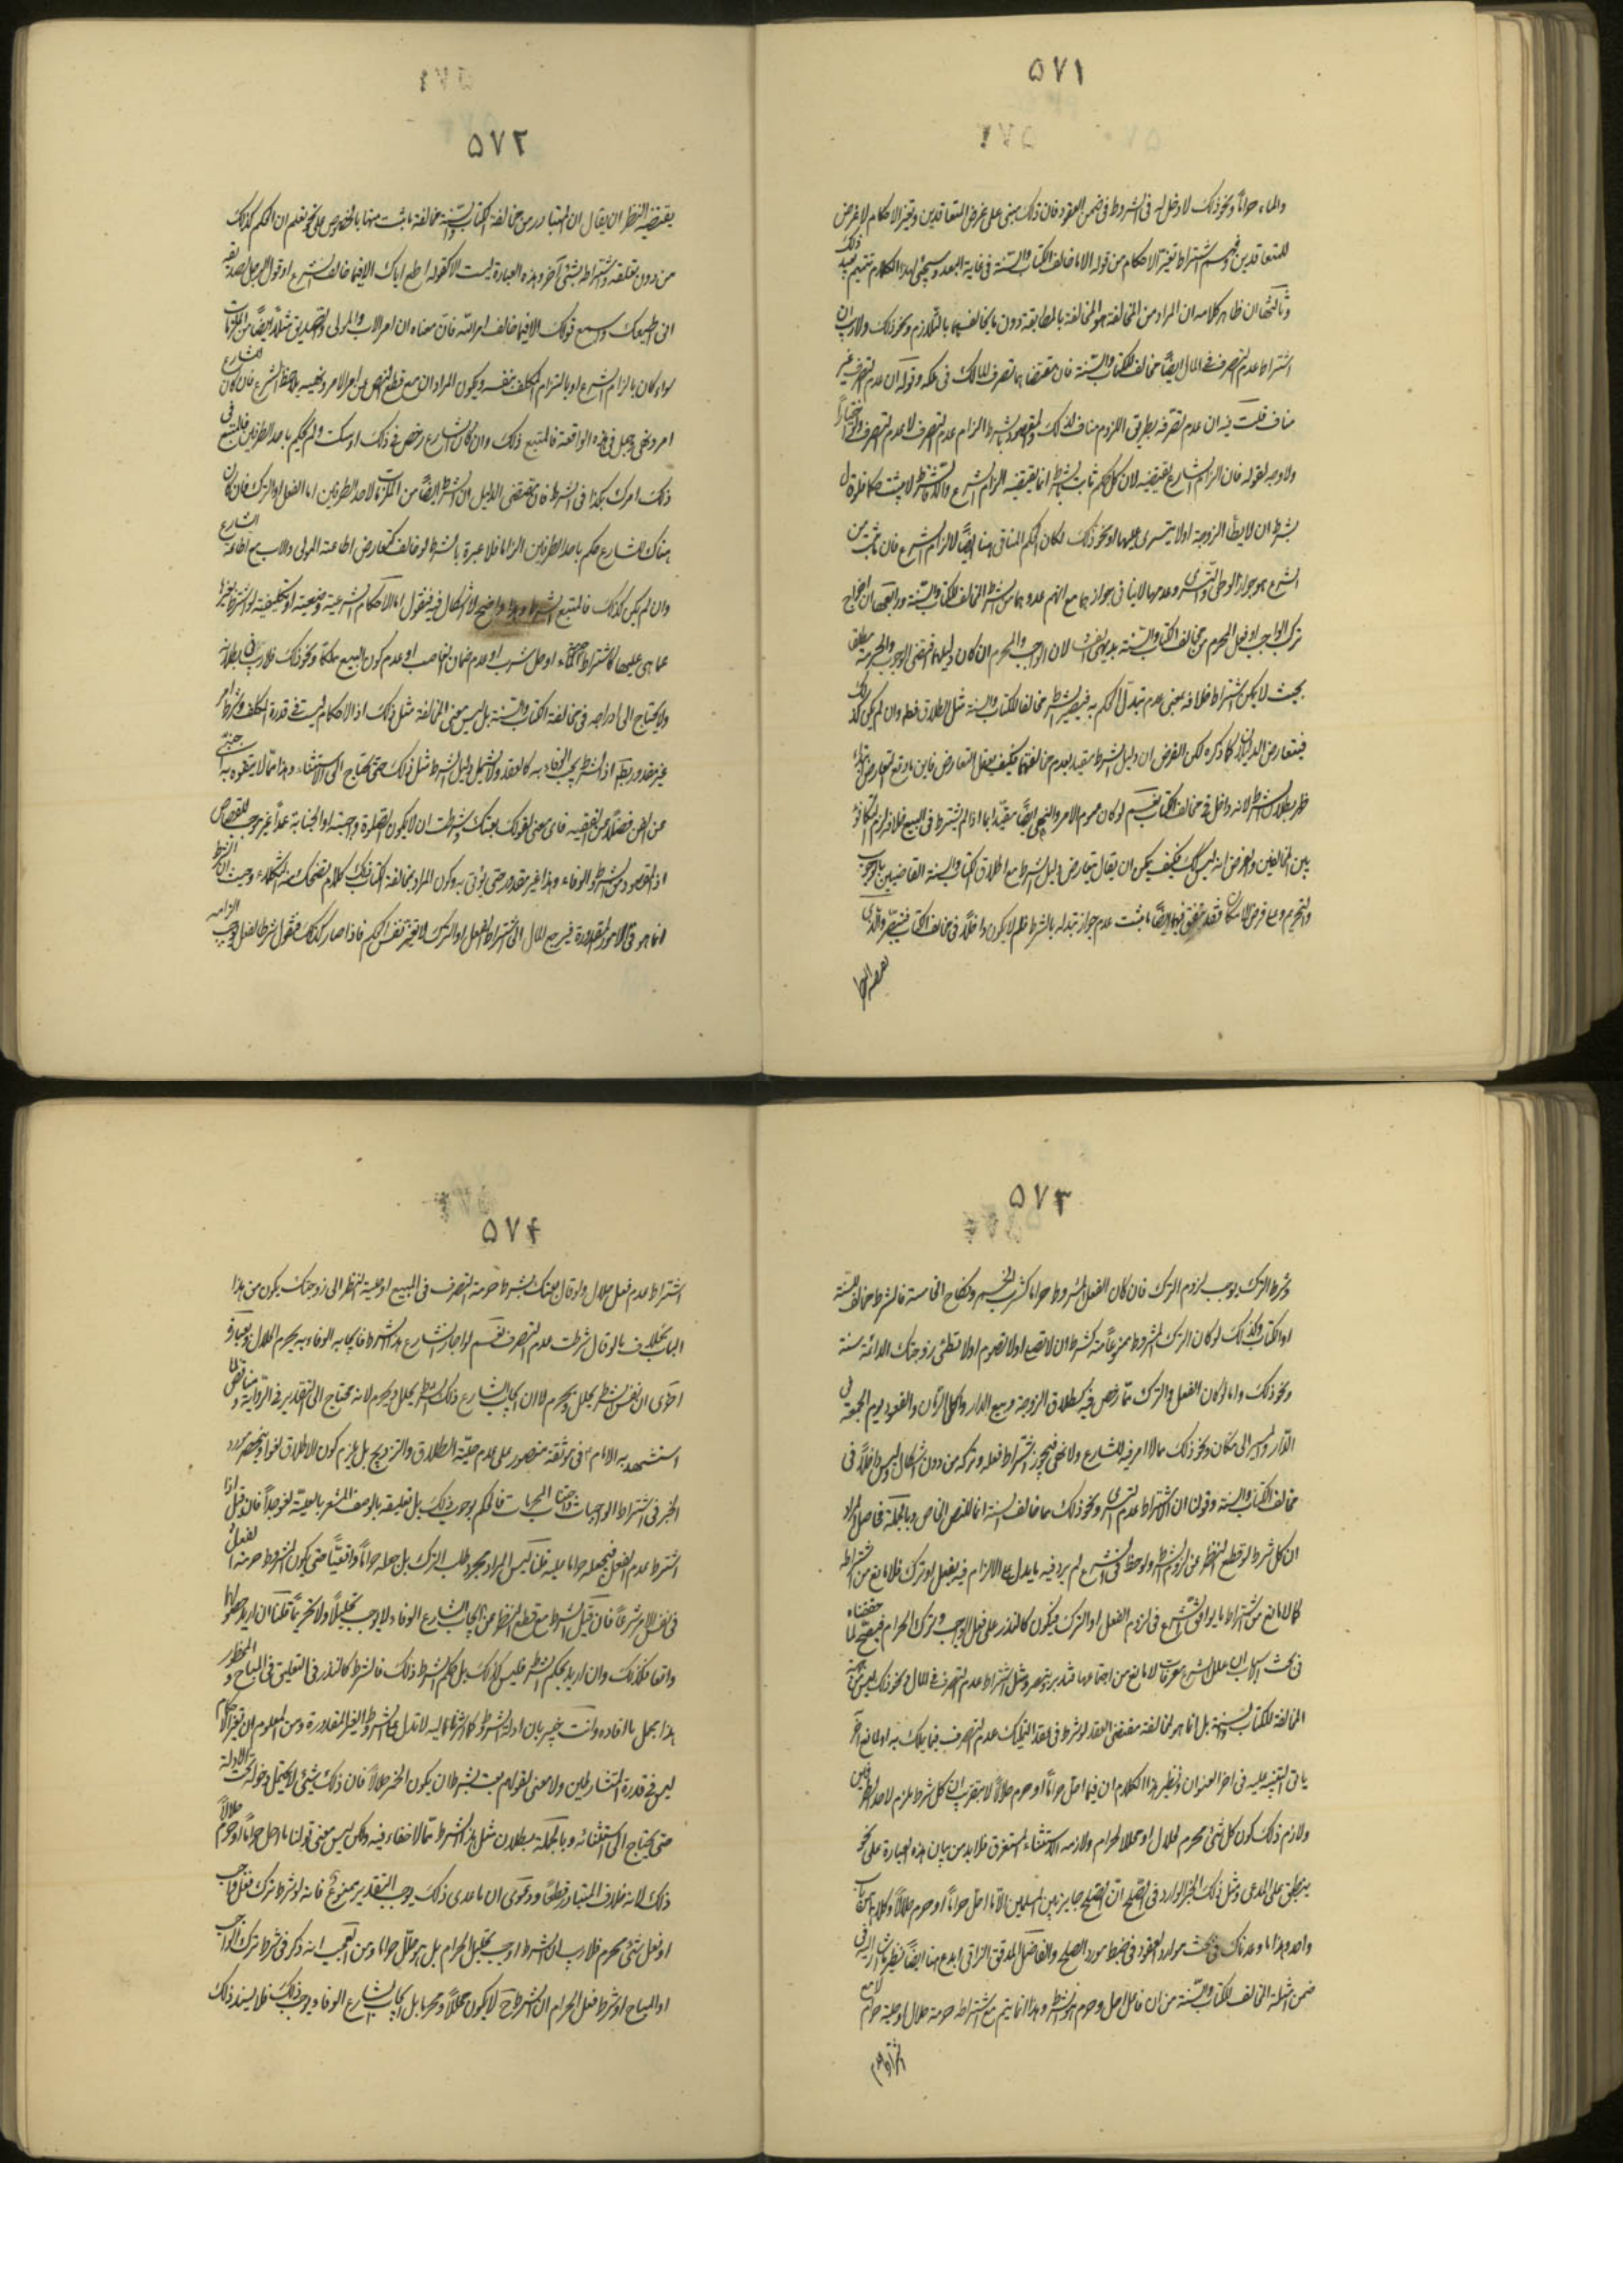 ۵۷۱
والماء حراماً ونحو ذلك لا دخل له فى الشروط فى ضمن العقود فان ذلك مبنى على غرض المتعاقدين وتغير الاحكام لا غرض
للمتعاقدين اشتراط تغير الاحكام من قوله الا ما خالف الكتاب والسنة فى غاية البعد وسيجئ لهذا الكلام تتميم
وثالثها ان ظاهر كلامه ان المراد من المخالفة هو المخالفة بالمطابقة دون ما يخالفهما بالتلازم ونحو ذلك ولا ريب ان
اشتراط عدم التصرف فى المال ايضاً مخالف للكتاب والسنة فان مقتضاهما تصرف المالك فى ملكه وقوله ان عدم التصرف غير
مناف قلت فيه ان عدم تصرفه بطريق اللزوم مناف لذلك والمقصود بالشرط الزام عدم التصرف لا عدم التصرف
ولا وجه لقوله فان الزام الشارع يقتضيه لان كل حكم ثابت بالشرط انما يقتضيه الزام الشرع
بشرط ان لا يطأ الزوجة او لا يتسرى عليها او نحو ذلك لكان الحكم المنافى هنا ايضاً لالزام الشرع فان ما ثبت من
الشرع هو جواز الوطى والتسرى وعدمهما لا ينافى جوازهما مع انهم عدوهما من الشرط المخالف للكتاب والسنة ورابعها ان اخراج
ترك الواجب او فعل المحرم من مخالف الكتاب والسنة بديهى لان الواجب والمحرم ان كان دليلهما مقتضى الوجوب والحرمة مطلقا
بحيث لا يمكن اشتراط خلافه بمعنى عدم تبدل الحكم به فيصير الشرط مخالفا للكتاب والسنة مثل الطلاق فظ وان لم يكن كذلك
فيتعارض الدليلان كما ذكره لكن الفرض ان دليل الشرط مقيد بعدم مخالفتهما فكيف يعقل التعارض فاين ما وقع التعارض
ظهر بطلان الشرط لانه داخل فى مخالف الكتاب نعم لو كان عموم الامر والنهى ايضاً مقيداً بما اذا لم يشترط فى البيع خلافه لزم التكافؤ
بين المخالفين والفرض انه ليس كك فكيف يمكن ان يقال يتعارض دليل الشرط مع اطلاق الكتاب والسنة القاضيين بالوجوب
والتحريم ومع فرض الامكان فقد تحقق فيهما ايضاً ما يثبت عدم جواز تبدله بالشرط فلم لا يكون داخلاً فى مخالف الكتاب فتبصر والذى
۵۷۲
يقتضيه النظر ان يقال ان المتبادر من مخالفة الكتاب والسنة مخالفة ما ثبت منهما بالخصوص على نحو نعلم ان الحكم كذلك
من دون تعلقه واشتراط بشئ آخر وهذه العبارة ليست الا كقوله اطع اباك الا فيما خالف الشرع او قول الرجل لصديقه
انى اطيعك واسمع قولك الا فيما خالف امر الله فان معناه ان امر الاب والمولى والصديق مثلاً ايضاً من الملزمات
سواء كان بالزام الشرع او بالتزام المكلف نفسه ويكون المراد ان مع قطع النظر عن امر الامر ونهيه يلاحظ الشرع فان كان الشارع
امر ونهى وجعل فى هذه الواقعة فالمتبع ذلك وان كان الشارع رخص فى ذلك او سكت ولم يحكم باحد الطرفين فالمتبع فى
ذلك امرك هكذا فى الشرط فان مقتضى الدليل ان الشرط ايضاً من الملزمات لاحد الطرفين اما الفعل او الترك فان كان
هناك للشارع حكم باحد الطرفين الزاما فلا عبرة بالشرط لو خالف كتعارض اطاعة المولى والاب مع اطاعة الشارع
وان لم يكن كذلك فالمتبع الشرط وهذا واضح لا اشكال فيه فنقول اما الاحكام الشرعية وضعية او تكليفية لو اشترط تغيرها
عما هى عليها كاشتراط او حل شرب او عدم ضمان الغاصب او عدم كون المبيع ملكا ونحو ذلك فلا ريب فى بطلانه
ولا يحتاج الى ادراجه فى مخالفة الكتاب والسنة بل ليس معنى المخالفة مثل ذلك اذ الاحكام ليست فى قدرة المكلف وشرط امر
غير مقدور باطل اذ الشرط يجب الوفاء به كالعقد ولا يشمل دليل الشرط مثل ذلك حتى يحتاج الى الاستثناء وهذا مما لا يتفوه به اجنبى
عن الفن فضلاً عن الفقيه فاى معنى لقولك بعتك وشرطت ان لا يكون الصلوة واجبة او الجناية عمداً غير موجب للقصاص
اذ المقصود من الشرط الوفاء وهذا غير مقدور حتى يؤتى به وكون المراد بمخالفة الكتاب ذلك كلام تضحك منه الثكلاء وحيث ان الشرط
انما هو فى الامور المقدورة فيرجع المال الى اشتراط الفعل او الترك لا تغير نفس الحكم فاذا صار كذلك فنقول شرط الفعل يوجب الزامه
۵۷۳
وشرط الترك يوجب لزوم الترك فان كان الفعل المشروط حراما كشرب الخمر ونكاح الخامسة فالشرط مخالف للسنة
او الكتاب وكذلك لو كان الترك المشروط ممنوعاً منه كشرط ان لا يصلى او لا يصوم او لا تطئ زوجتك الدائمة سنة
ونحو ذلك واما لو كان الفعل والترك مما رخص فيه كطلاق الزوجة وبيع الدار واكل الرمان والقعود يوم الجمعة فى
الدار والمسير الى مكان ونحو ذلك مما لا امر فيه للشارع ولا نهى فيجوز اشتراط فعله وتركه من دون اشكال وليس داخلاً فى
مخالف الكتاب والسنة وقولنا ان اشتراط عدم التسرى ونحو ذلك مما خالف السنة انما للنص الخاص وبالجملة فحاصل المراد
ان كل شرط لو قطع النظر عن لزوم الشرط ولوحظ فى الشرع لم يرد فيه ما يدل على الالزام فيه بفعل او ترك فلا مانع من اشتراطه
كما لا مانع من اشتراط ما يوافق الشرع فى لزوم الفعل او الترك فيكون كالنذر على فعل الواجب وترك الحرام فيصح لما حققناه
فى بحث الاسباب ان علل الشرع معرفات لا مانع من اجتماعها فتدبر وتبصر ومثل اشتراط عدم التصرف فى المال ونحو ذلك ليس من جهة
المخالفة للكتاب والسنة بل انما هو لمخالفة مقتضى العقد لو شرط فى عقد التمليك عدم التصرف فيما يملك به او لمانع آخر
ياتى التنبيه عليه فى آخر العنوان ونظير هذا الكلام ان فيما احل حراماً او حرم حلالاً لا بتقريب ان كل شرط ملزم لاحد الطرفين
ولازم ذلك كون كل شئ محرم لحلال او محللا لحرام ولازمه الاستثناء المستغرق فلابد من بيان هذه العبارة على نحو
ينطبق على المدعى ومثل ذلك الخبر الوارد فى الصلح ان الصلح جايز بين المسلمين الا ما احل حراماً او حرم حلالاً وكلاهما من باب
واحد وهذا ما وعدناك فى بحث موارد العقود فى ضبط مورد الصلح والفاضل المدقق النراقى ابدع هنا ايضاً نظير ما اشار اليه فى
ضمن امثلة المخالف للكتاب والسنة من ان فاعل احل وحرم هو الشرط وهذا انما يتم مع اشتراطه حرمة حلال او حلية حرام
۵۷۴
اشتراط عدم فعل حلال ولو قال بعتك بشرط حرمة التصرف فى المبيع او حلية النظر الى زوجتك يكون من هذا
الباب بخلاف ما لو قال شرطت عدم التصرف نعم لو اجاز الشارع هذا الشرط فايجابه الوفاء به يحرم الحلال وبعبارة
اخرى ان نفس الشرط يحلل ويحرم لا ان ايجاب الشارع ذلك الشرط يحلل ويحرم لانه محتاج الى التقدير فى الرواية ومناقض لما
استشهد به الامام فى موثقة منصور على عدم حلية الطلاق والتزويج بل يلزم كون الاطلاق لغوا وينحصر مورد
الخبر فى اشتراط الواجبات واجتناب المحرمات فالحكم لوجوب ذلك بل تعليقه بالوصف المشعر بالعلية لغو جداً فان قيل اذا
اشترط عدم الفعل فيجعله حراما عليه قلنا ليس المراد مجرد طلب الترك بل جعله حراماً واقعيا حتى يكون الشروط حرمة الفعل
فى نفس الامر شرعاً فان قيل الشرط مع قطع النظر عن ايجاب الشارع الوفاء لا يوجب تحليلاً ولا تحريماً قلنا ان اريد حصولهما
واقعا فكذلك وان اريد بحكم الشرط فليس كذلك بل حكم الشرط ذلك فالشرط كالنذر فى التعليق فى المباح والمحظور
هذا مجمل ما افاده وانت خبير بان ادلة الشروط كما اشرنا اليه لا تدل على الشروط الغير المقدورة ومن المعلوم ان تغير الاحكام
ليس فى قدرة المتشارطين ولا معنى لقولهم بعت بشرط ان يكون الخمر حلالاً فان ذلك شئ لا يحتمل دخوله تحت الادلة
حتى يحتاج الى استثنائه وبالجملة بطلان مثل هذا الشرط مما لا خفاء فيه ولكن ليس معنى قولنا ما احل حراماً او حرم حلالاً
ذلك لانه خلاف المتبادر قطعا ودعوى ان ما عدى ذلك يوجب التقدير ممنوع فانه لو شرط ترك فعل واجب
او فعل شئ محرم فلا ريب ان الشرط اوجب تحليل الحرام بل هو محلل حراما ومن العجب انه ذكر فى شرط ترك الواجب
او المباح او شرط فعل الحرام ان الشرط ح لا يكون محللاً ومحرما بل ايجاب الشارع الوفاء يوجب ذلك فلا يسند ذلك